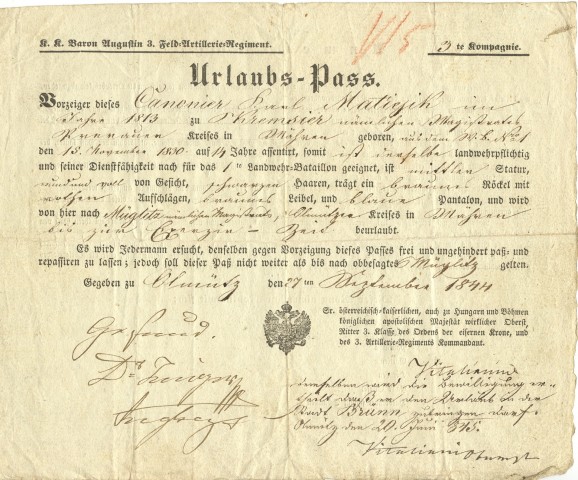 K. K. Baron Augustin 3. Feld-Artillerie-Regiment. 3 te Kompagnie.
Urlaubs-Pass.
Vorzeiger dieses Canonier Karl Matiejik im
Jahre 1813 zu Khremsier nämlichen Magistrates
Prerauer Kreises in Mähren geboren, aus dem W. B. No 1
den 15. November 1830 auf 14 Jahre assentirt, somit ist derselbe landwehrpflichtig
und seiner Dienstfähigkeit nach für das 1te Landwehr-Bataillon geeignet, ist mittler Statur,
rund und voll von Gesicht, schwarzen Haaren, trägt ein braunes Röckel mit
rothen Aufschlägen, braunes Leibel, und blaue Pantalon, und wird
von hier nach Müglitz nämlichen Magistrats, Olmützer Kreises in Mähren
bis zur Exerzir-Zeit beurlaubt.
Es wird Jedermann ersucht, denselben gegen Vorzeigung dieses Passes frei und ungehindert paß- und
repassiren zu lassen; jedoch soll dieser Paß nicht weiter als bis nach obbesagtes Müglitz gelten.
Gegeben zu Olmütz den 27ten September 1844
Sr. österreichisch-kaiserlichen, auch zu Hungarn und Böhmen
königlichen apostolischen Majestät wirklicher Oberst,
Ritter 3. Klasse des Ordens der eisernen Krone, und
des 3. Artillerie-Regiments Kommandant.
Gesund.
Dr
demselben wird die Bewilligung er-
theilt daß er den Urlaub in der
Stadt Brünn zubringen darf.
Olmütz den 20. Juni 845.
Oberst